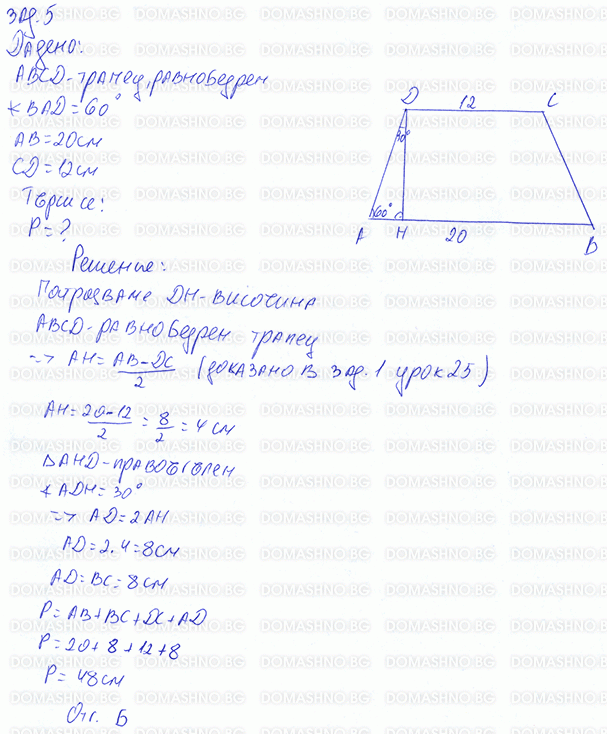 зад. 5
Дадено:
ABCD-трапец, равнобедрен
∢BAD=60°
AB=20см
CD=12см
Търси се:
P=?
D 12 C
30°
60°
A H 20 B
Решение:
Построяваме DH-височина
ABCD-равнобедрен трапец
=> AH= (AB-DC)/2 (доказано в зад. 1 урок 25)
AH= (20-12)/2 = 8/2 = 4 см
△AHD-правоъгълен
∢ADH=30°
=> AD=2AH
AD=2.4=8см
AD=BC=8см
P=AB+BC+DC+AD
P=20+8+12+8
P=48см
Отг. Б
DOMASHNO.BG